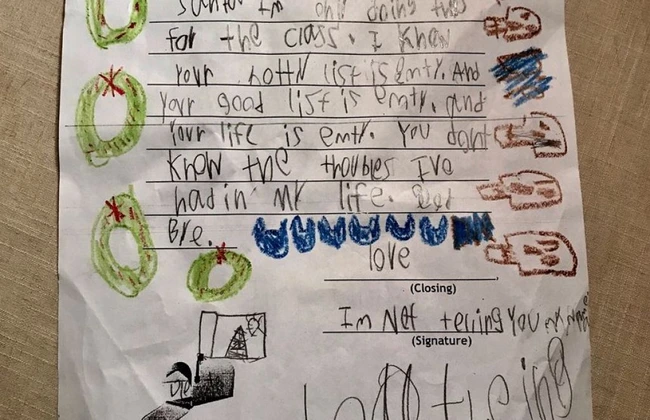 Santa Im only doing this
for the class. I Know
Your notty list is emty. And
Your good list is emty. And
Your life is emty. You dont
Know the troubles Ive
had in my life. Good
Bye.
love
(Closing)
Im Not telling you my name
(Signature)